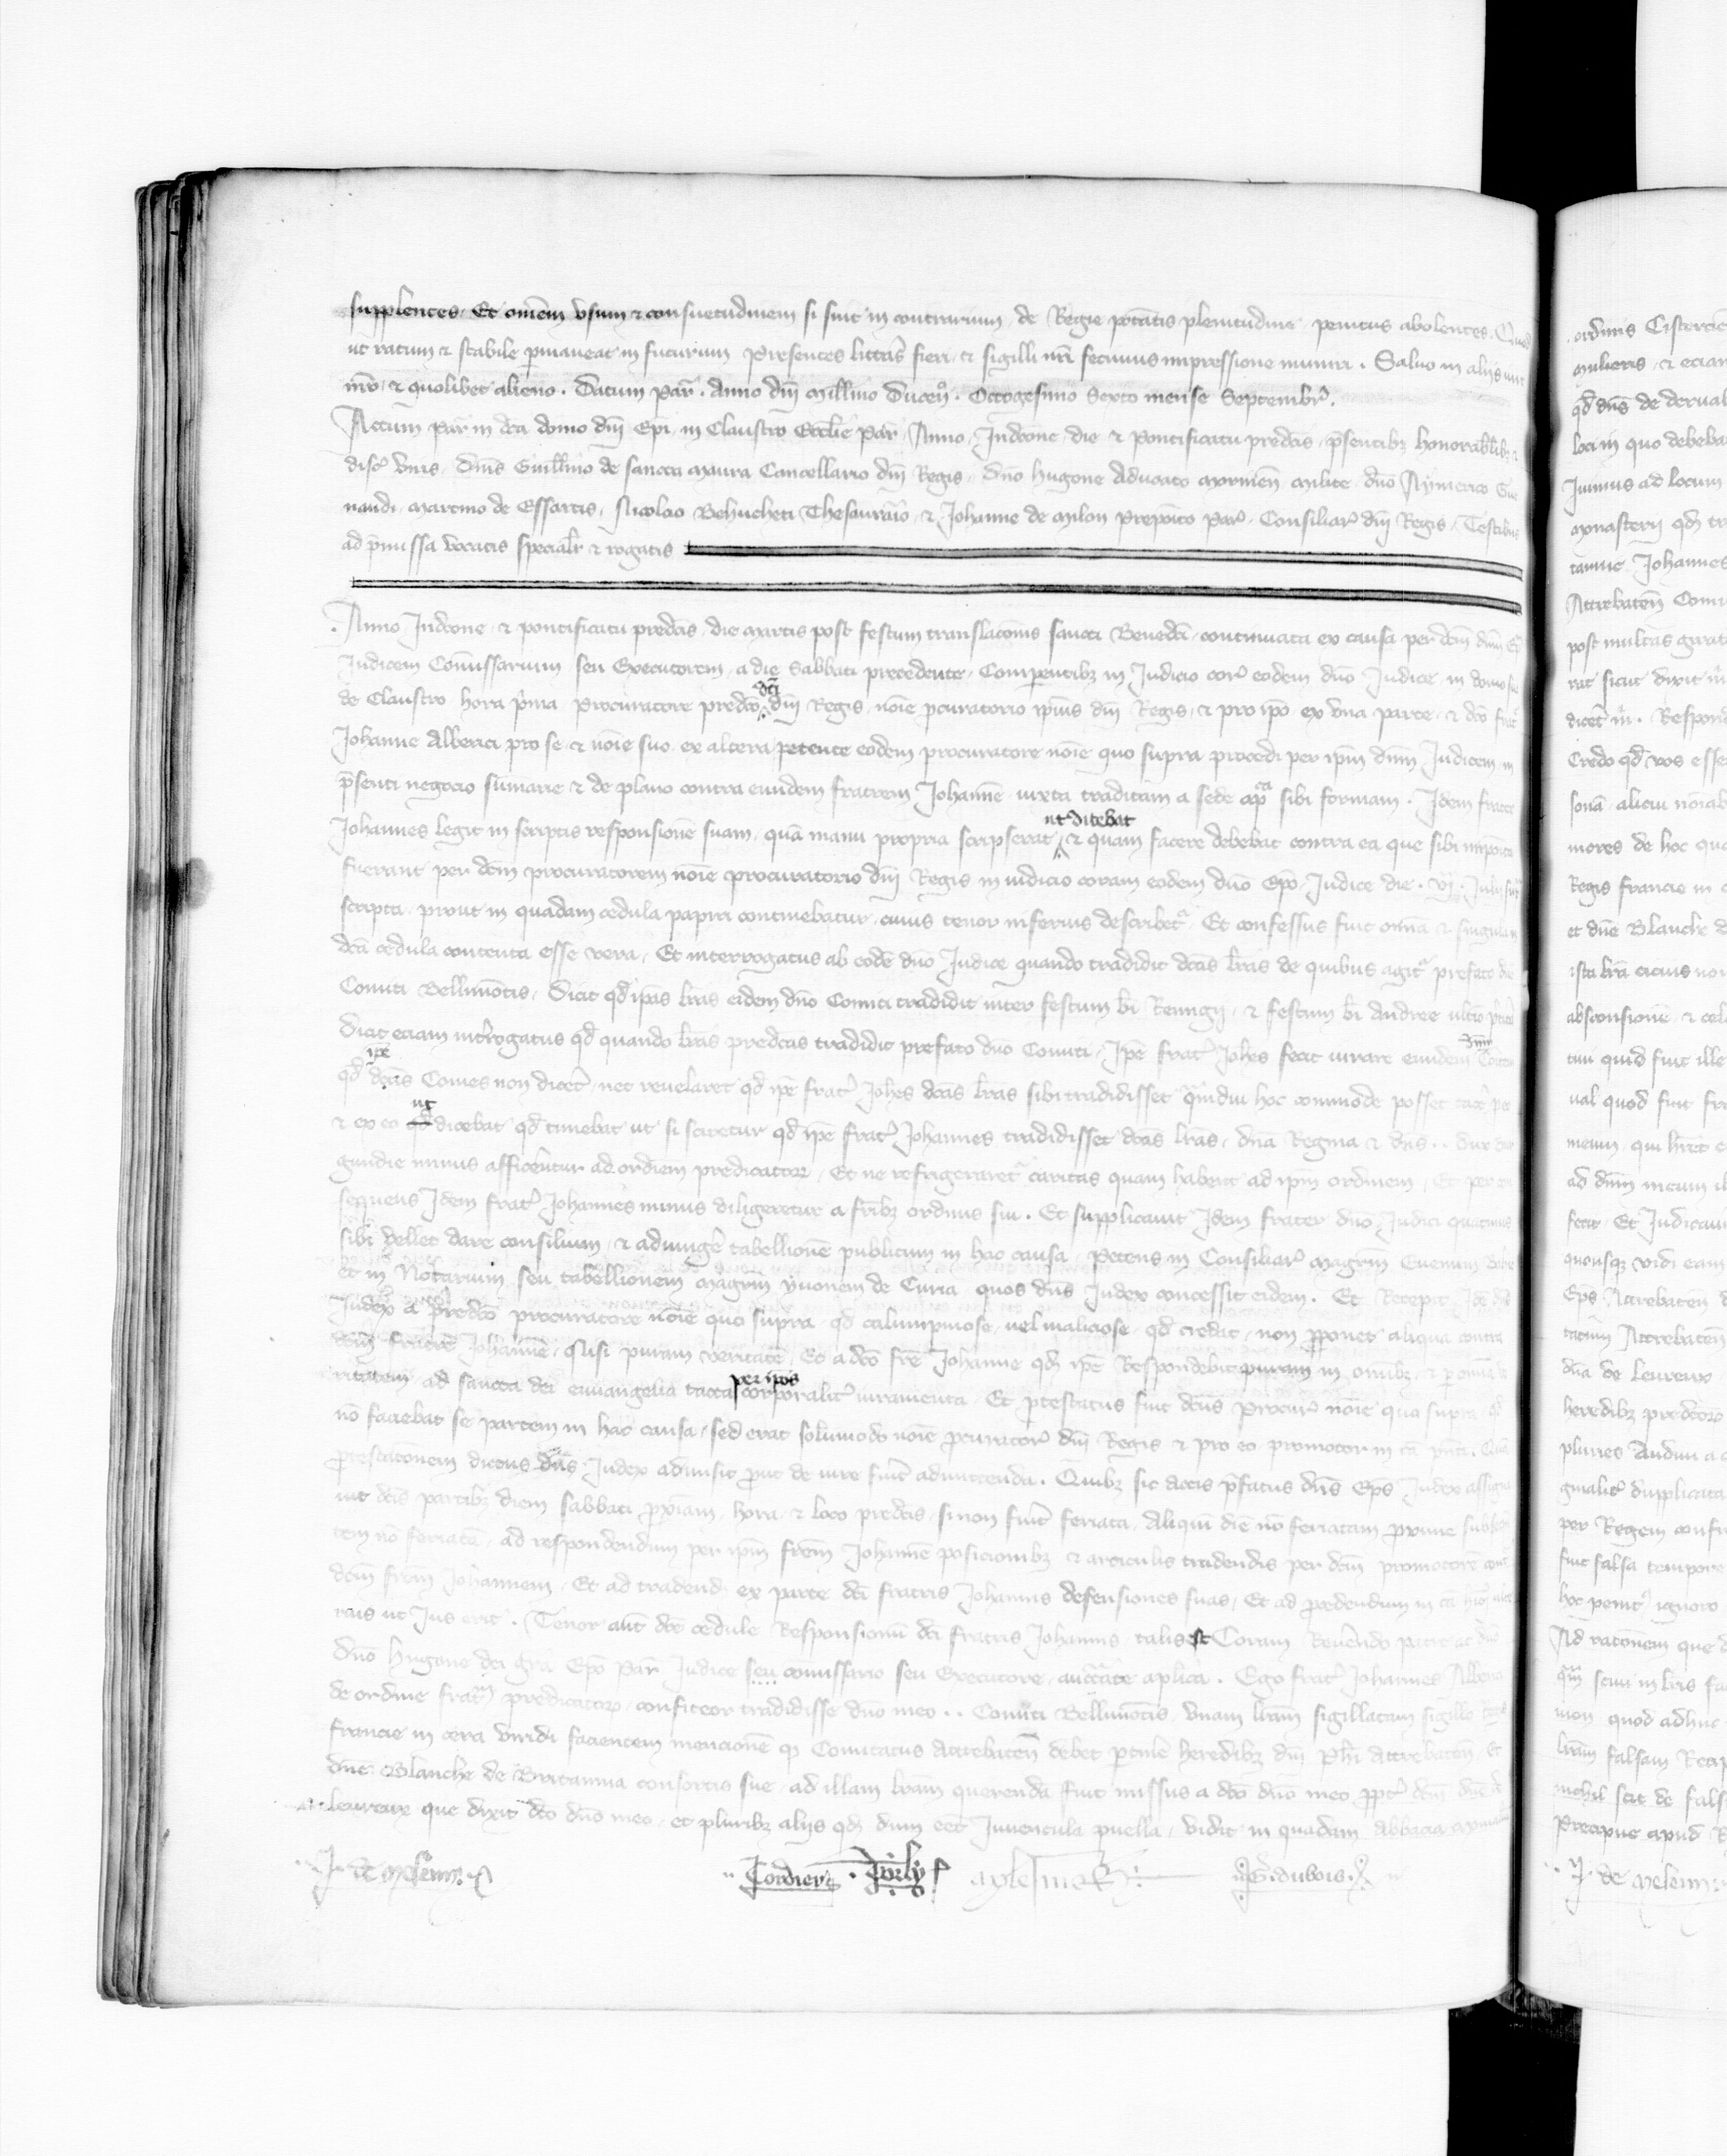 supplentes. Et omēm vsum & consuetudinem si sint in contrarium de Regie potātis plenitudine penitus abolentes. Quod
ut ratum & stabile pmaneat in futurum Presentes littas fieri & sigilli nrī fecimus impressione muniri. Saluo in alijs iure
nr̄o & quolibet alieno. Datum Par̄. Anno dn̄i Millīmo Ducen̄o. Octogesimo Sexto mense Septembr̄.
Actum Par̄ in dc̄a domo dn̄i Ep̄i in Claustro Eccl̄ie Par̄ Anno Indcōne die & Pontificatu predc̄is p̄sentibꝫ honorabilibꝫ &
disc̄ viris dn̄is Guillm̄o de sancta Maura Cancellario dn̄i Regis, dn̄o Hugone Aduocato milite dn̄o Aymerico Gue
naudi, Martino de Essartis, Nicolao Behucheti Thesaurario & Johanne de Milon Preposito Par̄. Consiliar̄ dn̄i Regis, Testibus
ad p̄missa vocatis specialr̄ & rogatis
Anno Indcōne & pontificatu predc̄is die martis post festum translacōnis sancti Benedc̄i continuata ex causa per dc̄m dn̄m Ep̄m
Judicem Com̄issarium seu Executorem a die sabbati precedente, Comparentibꝫ in Judicio cor̄ eodem dn̄o Judice in domo sua
de Claustro hora prima Procuratore predc̄o dc̄i dn̄i Regis nōie pcuratorio ip̄ius dn̄i Regis & pro ip̄o ex vna parte & dc̄o fr̄e
Johanne Alberici pro se & nōie suo ex altera petente eodem procuratore nōie quo supra procedi per ip̄m dn̄m Judicem in
p̄senti negocio sūmarie & de plano contra eundem fratrem Johannē iuxta traditam a sede apl̄ica sibi formam. Idem frater
Johannes legit in scriptis responsionē suam quā manu propria scripserat ut dicebat & quam facere debebat contra ea que sibi imposita
fuerant per dc̄m procuratorem nōie procuratorio dn̄i Regis in iudicio coram eodem dn̄o Ep̄o Judice die . vi . Julij sup
scripta prout in quadam cedula papiri continebatur cuius tenor inferius describet̄. Et confessus fuit omīa & singula in
dc̄a cedula contenta esse vera, Et interrogatus ab eodē dn̄o Judice quando tradidit dc̄as lr̄as de quibus agit̄ prefato dn̄o
Comiti Bellimōtis, dicit qd̄ ip̄as lr̄as eidem dn̄o Comiti tradidit inter festum bī Remigij & festum bī Andree ultīo pret
Dicit eciam int̄rogatus qd̄ quando lr̄as predc̄as tradidit prefato dn̄o Comiti, Ip̄e frat̄ Joh̄es fecit iurare eundem dn̄m Comitē
qd̄ ip̄e dc̄us Comes non dicet̄ nec reuelaret qd̄ ip̄e frat̄ Joh̄es dc̄as lr̄as sibi tradidisset quādiu hoc commode posset
& ex eo ut dicebat qd̄ timebat ut si sciretur qd̄ ip̄e frat̄ Johannes tradidisset dc̄as lr̄as, dn̄a Regina & dn̄s .. dux Bur
gundie minus afficerentur ad ordinem predicatoꝝ, Et ne refrigeraret̄ caritas quam habent ad ip̄m ordinem, Et per
sequens Idem frat̄ Johannes minus diligeretur a fr̄ibꝫ ordinis sui. Et supplicauit Idem frater dn̄o Judici quatinus
sibi vellet dare consilium & adiungere tabellionē publicum in hac causa, Petens in Consiliar̄ magr̄m Euenum
et in Notarium seu tabellionem magr̄m yuonem de Curia quos dn̄s Judex concessit eidem. Et Recepit Idē dn̄s
Judex a predc̄o procuratore nōie quo supra qd̄ calumpniose vel maliciose qd̄ credat non pponet aliqua contra
dc̄m fratrē Johannē, Nisi puram veritatē, Et a dc̄o fr̄e Johanne qd̄ ip̄e Respondebit puram in omībꝫ & p omīa
veritatem ad sancta dei euuangelia tacta per ip̄os corporalit̄ iuramenta. Et p̄testatus fuit dc̄us Procur̄ nōie quo supra qd̄
nō faciebat se partem in hac causa, sed erat solummodo nōie pcurator̄ dn̄i Regis & pro eo promotor in cā
p̄testacōnem dictus dn̄s Judex admisit put de iure fuit admittenda. Quibꝫ sic actis p̄fatus dn̄s Ep̄s Judex assigna
uit dc̄is partibꝫ diem sabbati p̄ximam hora & loco predc̄is, si non fuīt feriata, Aliquā diē nō feriatam p̄xime subseq
tem nō feriatā ad respondendum per ip̄m fr̄em Johannē posicionibꝫ & articulis tradendis per dc̄m promotorē contra
dc̄m fr̄em Johannem, Et ad tradend̄ ex parte dc̄i fratris Johannis defensiones suas, Et ad p̄cedendum in cā
rius ut Jus erit. Tenor aūt dc̄e cedule Responsionū dc̄i fratris Johannis talis est Coram Reuerendo patre ac dn̄o
dn̄o hugone dei grā Ep̄o Par̄ Judice seu comissario seu Executore, auctāte apl̄ica. Ego frat̄ Johannes Alberici
de ordine fratrum predicatoꝝ confiteor tradidisse dn̄o meo .. Comiti Bellimōtis, vnam lr̄am sigillatam sigillo
francie in cera viridi facientem mencionē qd̄ Comitatus Attrebateñ debet ptinē heredibꝫ dn̄i Ph̄i Attrebateñ Et
dn̄e Blanche de Britannia consortis sue, ad illam lr̄am querendā fuit missus a dc̄o dn̄o meo ppt̄ dc̄m dn̄ā de
Leureux que dixit dc̄o dn̄o meo et pluribꝫ alijs qd̄ dum eēt Juuencula puella, vidit in quadam Abbacia
J. de meleun
Cordier
G. dubois
ordinis Cistercien
mulieris & eciam
qd̄ dn̄s de deruał
loci in quo debeba
Juimus ad locum
monasterij qd̄ tr
tanne Johannes
Attrebateñ Comi
post multas grat
rat sicut dixit
dicet m̄. Respond
Credo qd̄ vos esse
sonā alicui nōiab
mores de hoc qu
Regis francie in
et dn̄e Blanche d
ista lr̄a cicius non
absconsionē & cel
tui quid fuit ille
ual quod fuit fr
meum qui hr̄et
ad dn̄m meum
fecit. Et Judicaui
quousqꝫ vidi eam
Ep̄s Attrebateñ
tatum Attrebateñ
dn̄a de Leureux
heredibꝫ predc̄oꝝ
plures Audiui a
ginalit̄ duplicata
per Regem confir
fuit falsa tempore
hoc penit̄ ignoro
Ad racōnem que
sciui in lr̄is fa
mon quod adhuc
lr̄am falsam Recep
nichil scit de fals
Precipue apud
J. de meleun